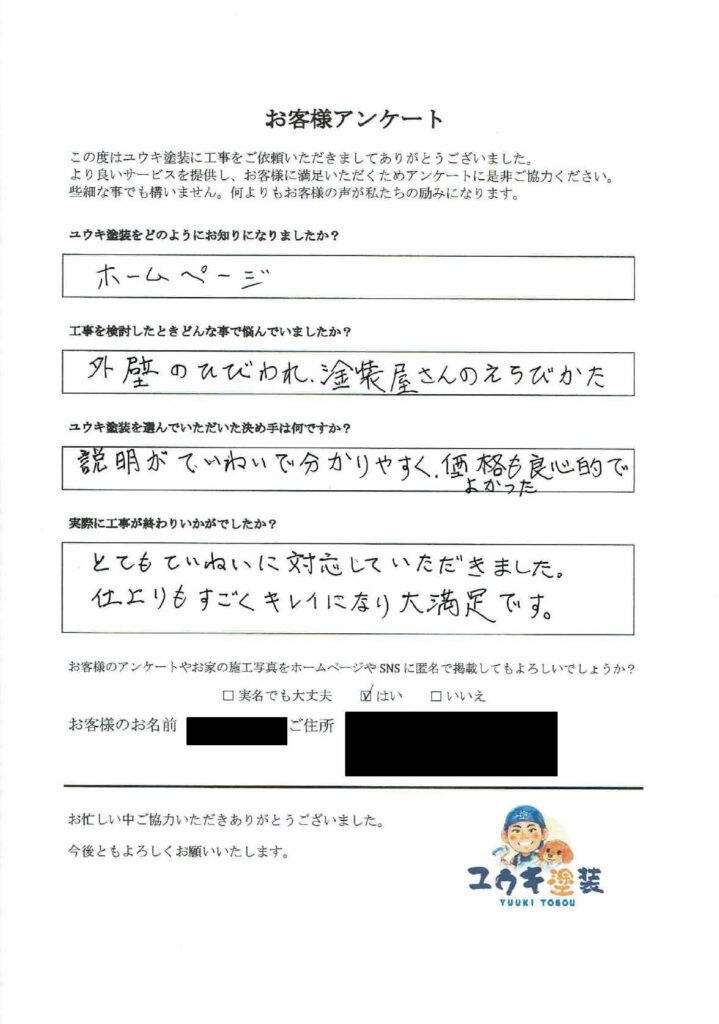 お客様アンケート
この度はユウキ塗装に工事をご依頼いただきましてありがとうございました。
より良いサービスを提供し、お客様に満足いただくためアンケートに是非ご協力ください。
些細な事でも構いません。何よりもお客様の声が私たちの励みになります。
ユウキ塗装をどのようにお知りになりましたか？
ホームページ
工事を検討したときどんな事で悩んでいましたか？
外壁のひびわれ、塗装屋さんのえらびかた
ユウキ塗装を選んでいただいた決め手は何ですか？
説明がていねいで分かりやすく、価格も良心的で
よかった
実際に工事が終わりいかがでしたか？
とてもていねいに対応していただきました。
仕上りもすごくキレイになり大満足です。
お客様のアンケートやお家の施工写真をホームページやSNSに匿名で掲載してもよろしいでしょうか？
□ 実名でも大丈夫 ☑ はい □ いいえ
お客様のお名前 ご住所
お忙しい中ご協力いただきありがとうございました。
今後ともよろしくお願いいたします。
ユウキ塗装
YUUKI TOSOU